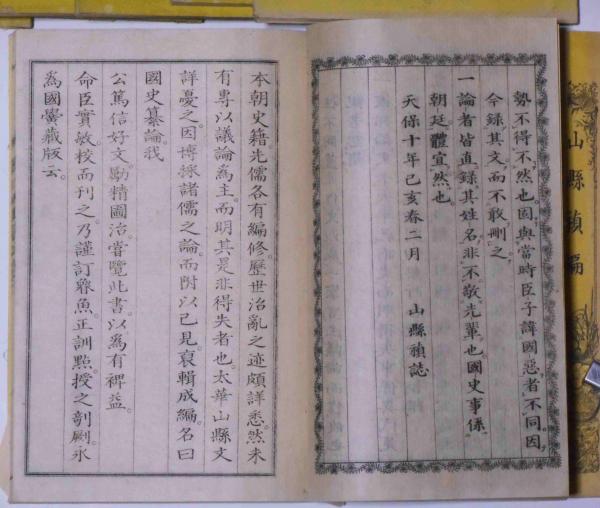 勢不得不然也。固與當時臣子諱國惡者不同。因
今錄其文而不敢刪之
一論者皆直錄其姓名。非不敬先輩也。國史事係
朝廷。體宜然也
天保十年己亥春二月　山縣禎誌
本朝史籍。先儒各有編修。歷世治亂之迹頗詳悉。然未
有專以議論為主。而明其是非得失者也。太華山縣文
詳憂之。因博採諸儒之論。而附以己見。裒輯成編。名曰
國史纂論。我
公篤信好文。勵精圖治。嘗覽此書。以為有裨益。
命臣實敏校而刊之。乃謹訂豕魚。正訓點。授之剞劂。永
為國黌藏版云。
山縣禎